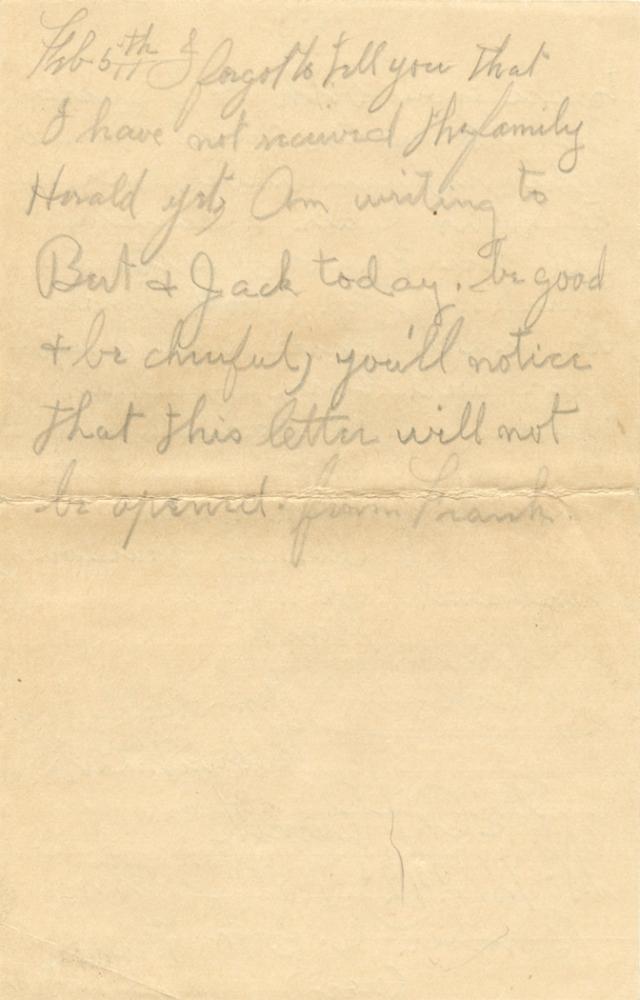 Feb 5th I forgot to tell you that
I have not received the family
Herald yet, Am writing to
Bert & Jack today. be good
+ be cheerful, you'll notice
that this letter will not
be opened. from Frank.